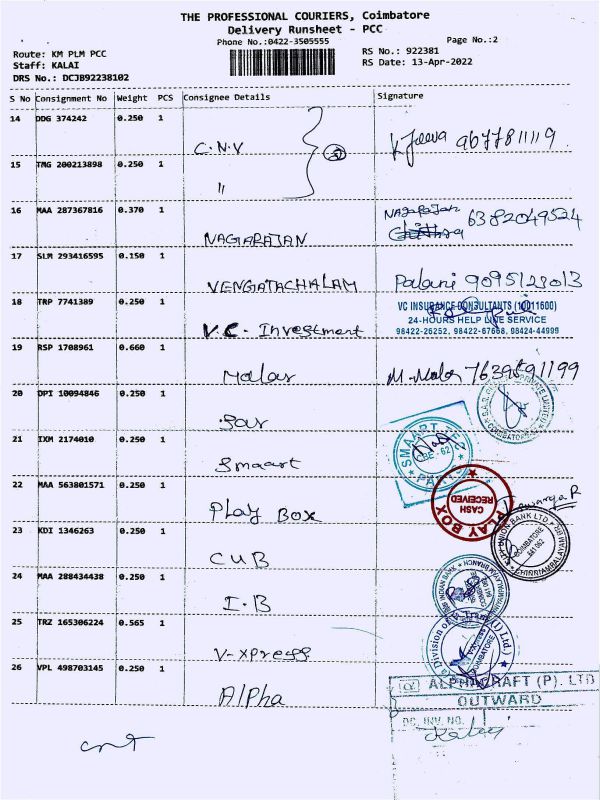 THE PROFESSIONAL COURIERS, Coimbatore
Delivery Runsheet - PCC
Phone No.:0422-3505555
Page No.:2
Route: KM PLM PCC
RS No.: 922381
Staff: KALAI
RS Date: 13-Apr-2022
DRS No.: DCJB92238102
S No Consignment No Weight PCS Consignee Details Signature
14 DDG 374242 0.250 1 C.N.V K Jeeva 9677811119
15 TMG 200213898 0.250 1 "
16 MAA 287367816 0.370 1 NAGARAJAN Nagarajan 6382049524
17 SLM 293416595 0.150 1 VENGATACHALAM Palani 9095123013
18 TRP 7741389 0.250 1 V.C - Investment
VC INSURANCE CONSULTANTS (10011600)
24-HOURS HELP LINE SERVICE
98422-26252, 98422-67668, 98424-44999
19 RSP 1708961 0.660 1 Malar M. Malar
20 DPI 10094846 0.250 1 Sar
21 IXM 2174010 0.250 1 Smaart
SMAART
22 MAA 563801571 0.250 1 Play BOX
CASH RECEIVED
PLAY BOX
23 KDI 1346263 0.250 1 CUB
UNION BANK LTD
COIMBATORE
641 062
24 MAA 288434438 0.250 1 I.B
INDIAN BANK
25 TRZ 165306224 0.565 1 V-xpress
a Division of V-Trans (I) Ltd.
COIMBATORE
26 VPL 498703145 0.250 1 Alpha
ALPHACRAFT (P). LTD
OUTWARD
DC. INV. NO.